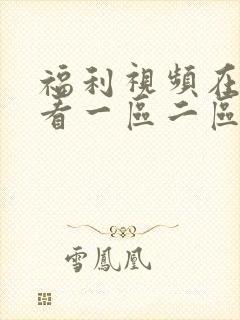 福利視頻在
看一區二區
雪鳳凰